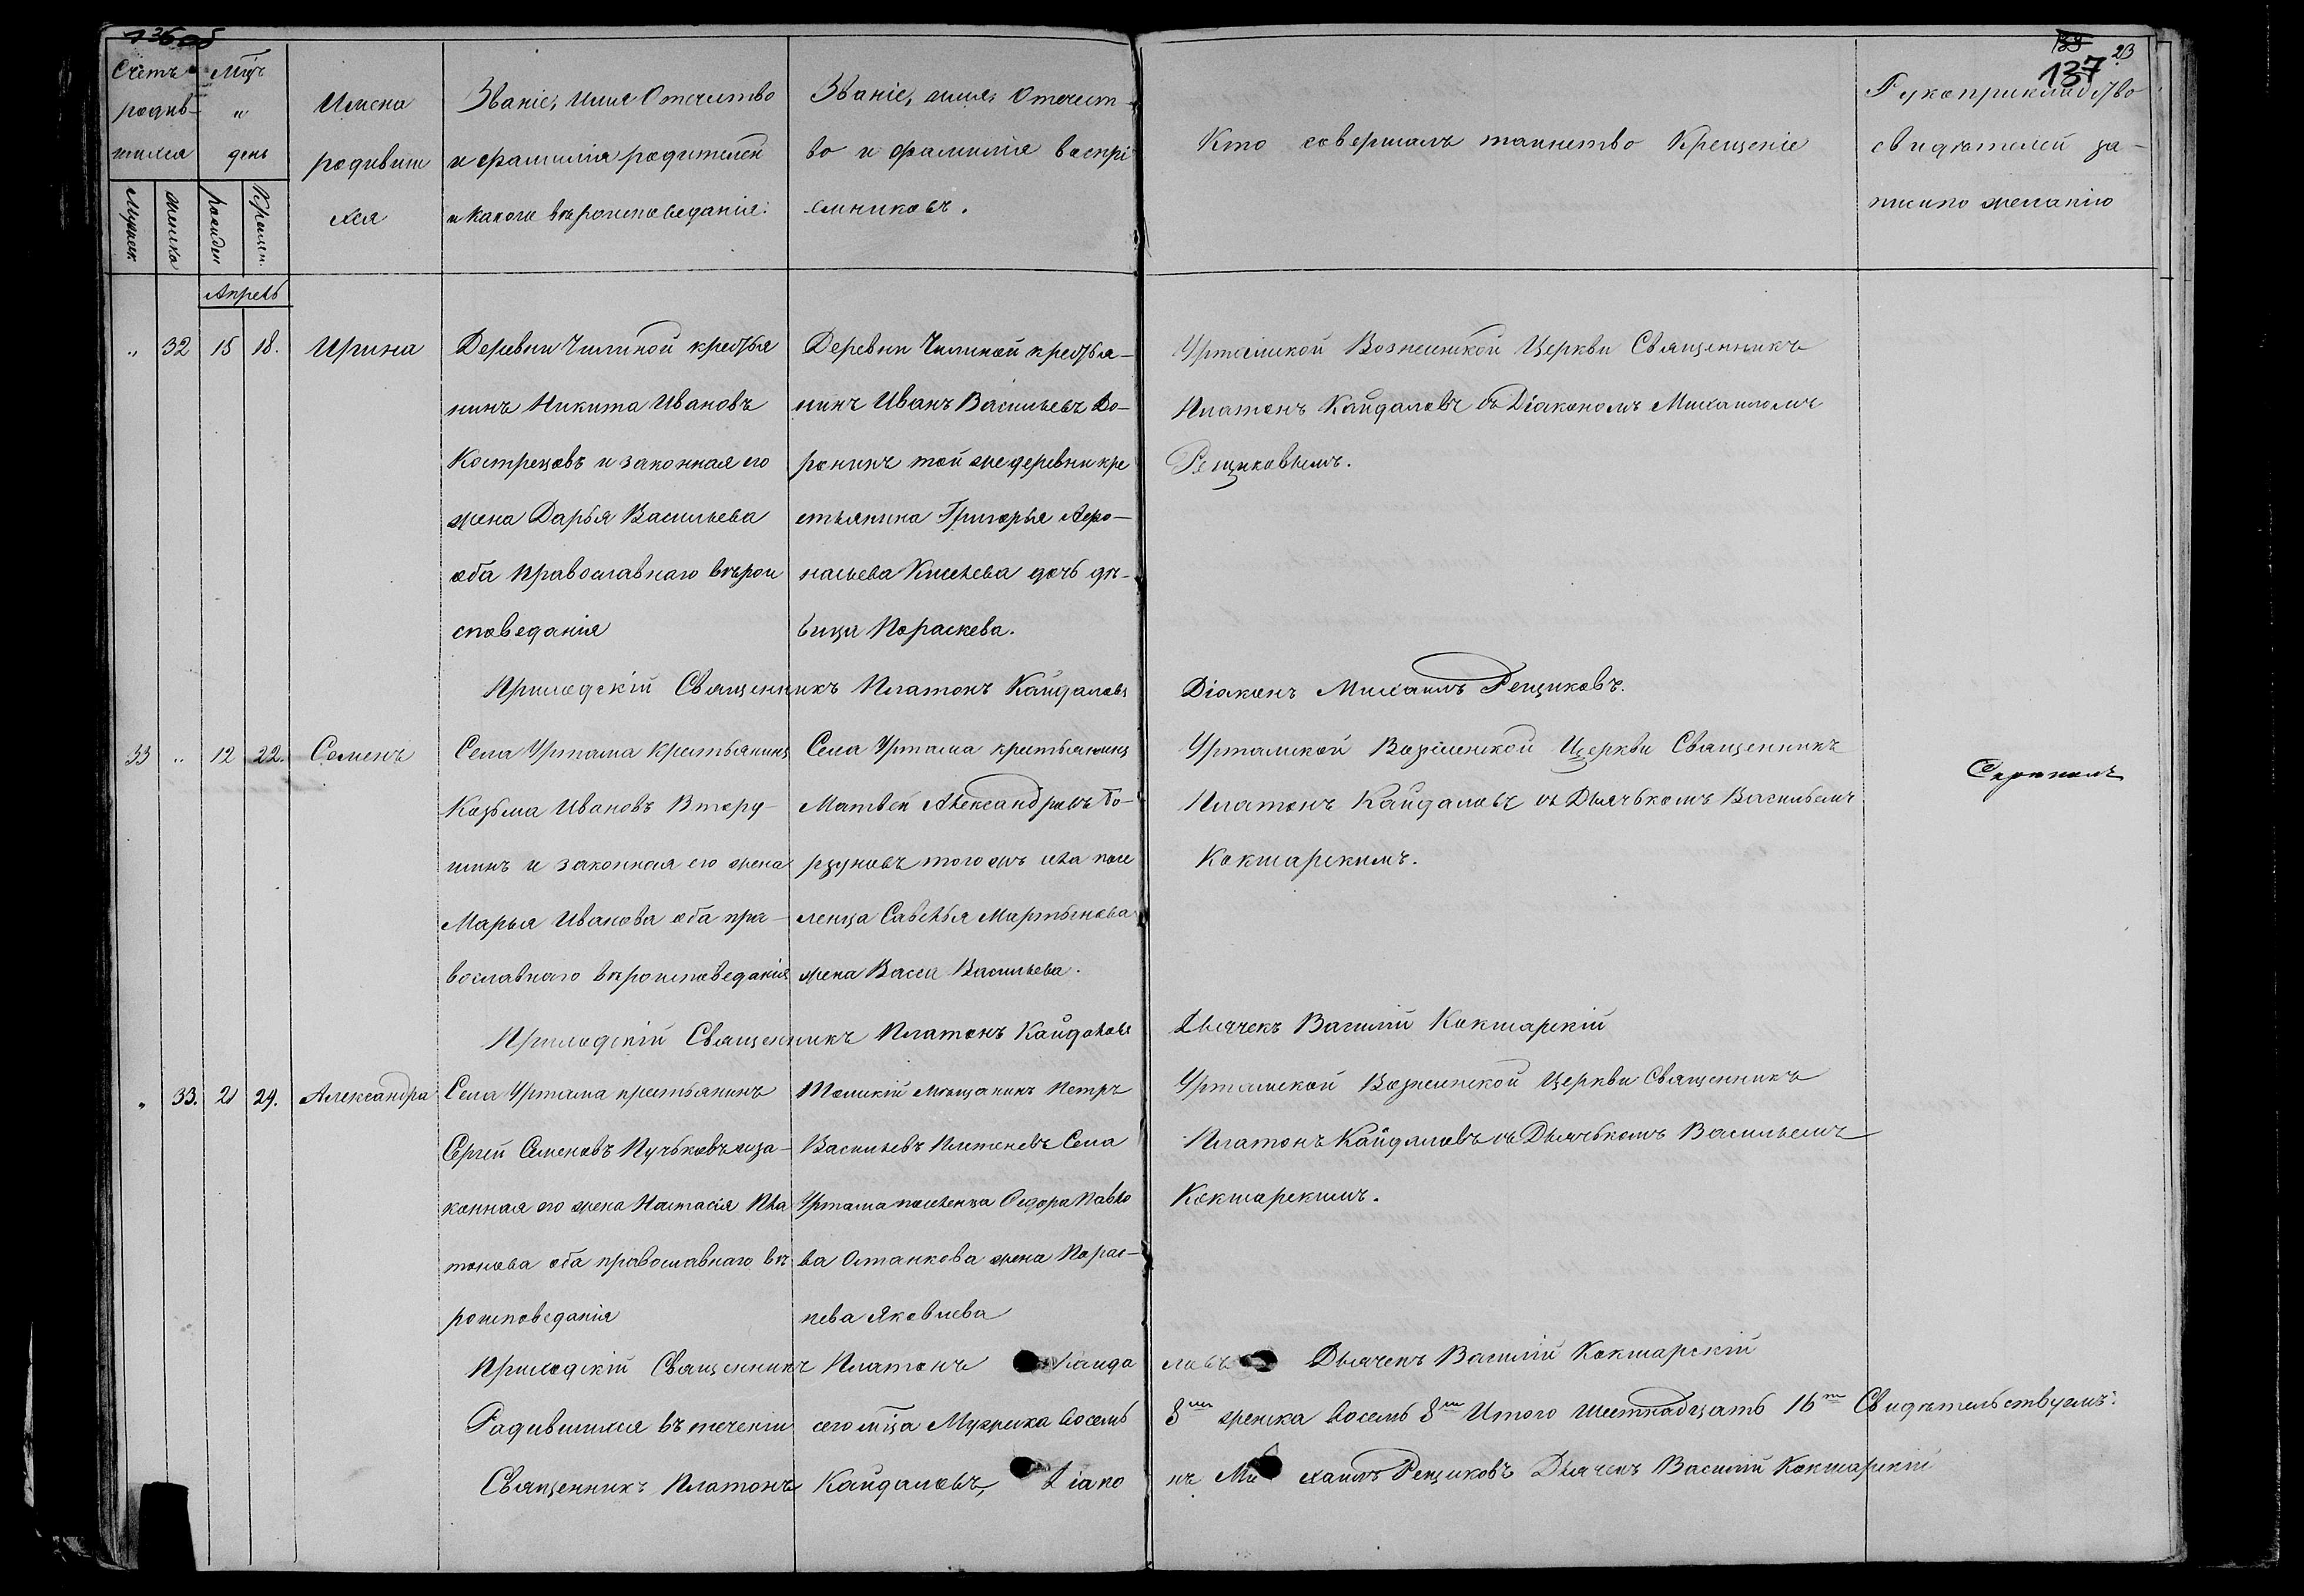 136 об
139 23
137
Счетъ родив-шихся
Мужеск. Женска
Мцъ и день
рожден Крещен.
Имена родившихся
Званіе, Имя Отечество
и фамилія родителей
и какого вѣроисповеданія.
Званіе, имя, Отечест-
во и фамилія воспрі
емниковъ.
Кто совершалъ таинство Крещеніе
Рукоприкладство
свидѣтелей за-
писи по желанію
Апрель
" 32 15 18. Ирина
Деревни Чилиной крестья
нинъ Никита Ивановъ
Кострецовъ и законная его
жена Дарья Васильева
оба православнаго вѣрои
споведанія
Деревни Чилиной крестья-
нинъ Иванъ Васильевъ До-
ронинъ той же деревни кре
стьянина Григорья Афо-
насьева Киселева дочь дѣ-
вица Пораскева.
Уртамской Вознесенской Церкви Священникъ
Платонъ Кайдаловъ съ Діакономъ Михаиломъ
Рещиковымъ.
Приходскій Священникъ Платонъ Кайдаловъ Діаконъ Михаилъ Рещиковъ.
33 " 12 22. Семенъ
Села Уртама Крестьянинъ
Козьма Ивановъ Втору-
шинъ и законная его жена
Марья Иванова оба пра-
вославнаго вѣроисповеданія
Села Уртама крестьянинъ
Матвей Александровъ Бо-
рзуновъ того жъ села посе
ленца Савелья Мартынова
жена Васса Васильева.
Уртамской Вознесенской Церкви Священникъ
Платонъ Кайдаловъ съ Дьячькомъ Васильемъ
Кокшарскимъ.
Приходскій Священникъ Платонъ Кайдаловъ Дьячекъ Василій Кокшарскій
" 33. 21 29. Александра
Села Уртама крестьянинъ
Сергей Семеновъ Пучьковъ и за-
конная его жена Настасія Пла
тонова оба православнаго вѣ
роисповеданія
Томскій Мѣщанинъ Петръ
Васильевъ Плетеневъ Села
Уртама поселенца Федора Павло
ва Останкова жена Парас-
кева Яковлева
Уртамской Вознесенской Церкви Священникъ
Платонъ Кайдаловъ съ Дьячькомъ Васильемъ
Кокшарскимъ.
Приходскій Священникъ Платонъ Кайда ловъ Дьячекъ Василій Кокшарскій
Родившихся въ теченіи сего мца Мужеска восемь 8 женска восемь 8 Итого шестнадцать 16 Свидѣтельствуемъ:
Священникъ Платонъ Кайдаловъ, Діако нъ Ми хаилъ Рещиковъ Дьячекъ Василій Кокшарскій